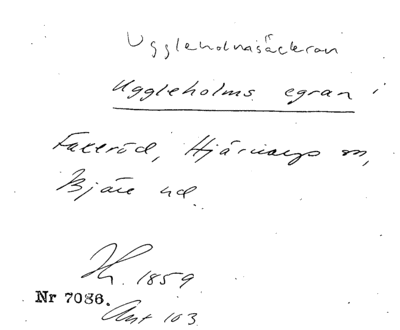 Uggleholmsäckran
Uggleholms egran i
Faxeröd, Hjärnarps sn,
Bjäre hd.
Hz. 1859
Nr 7086.
Ant 103